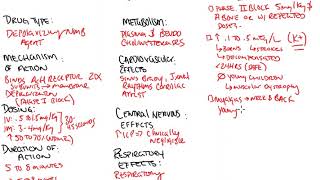 DRUG TYPE:
DEPOLARIZING NMB
AGENT
MECHANISM
OF ACTION
BINDS ACH RECEPTOR 2α
SUBUNITS → MEMBRANE
DEPOLARIZATION
(PHASE I BLOCK)
DOSING:
IV: .5-1.5mg/kg
IM: 3-4mg/kg
30-
SECONDS
DURATION OF
ACTION
5 TO 8 MINUTES
METABOLISM:
PLASMA & PSEUDO
CHOLINESTERASES
CARDIOVASCULAR
EFFECTS
SINUS BRADY, JUNCT
RHYTHMS
CARDIAC ARREST
CENTRAL NERVOUS
EFFECTS
↑ICP → CLINICALLY
NEGLIGIBLE
RESPIRATORY
EFFECTS:
RESPIRATORY
PHASE II BLOCK 5mg/kg &
ABOVE OR W/ REPEATED
DOSES.
↑ .1 TO .5 mEq/L (K+)
→ BURNS → STROKES
→ DENERVATION
→ 24HRS (DEFC)
YOUNG CHILDREN
→ MUSCULAR DYSTROPHY
MYALGIAS → NECK & BACK
YOUNG